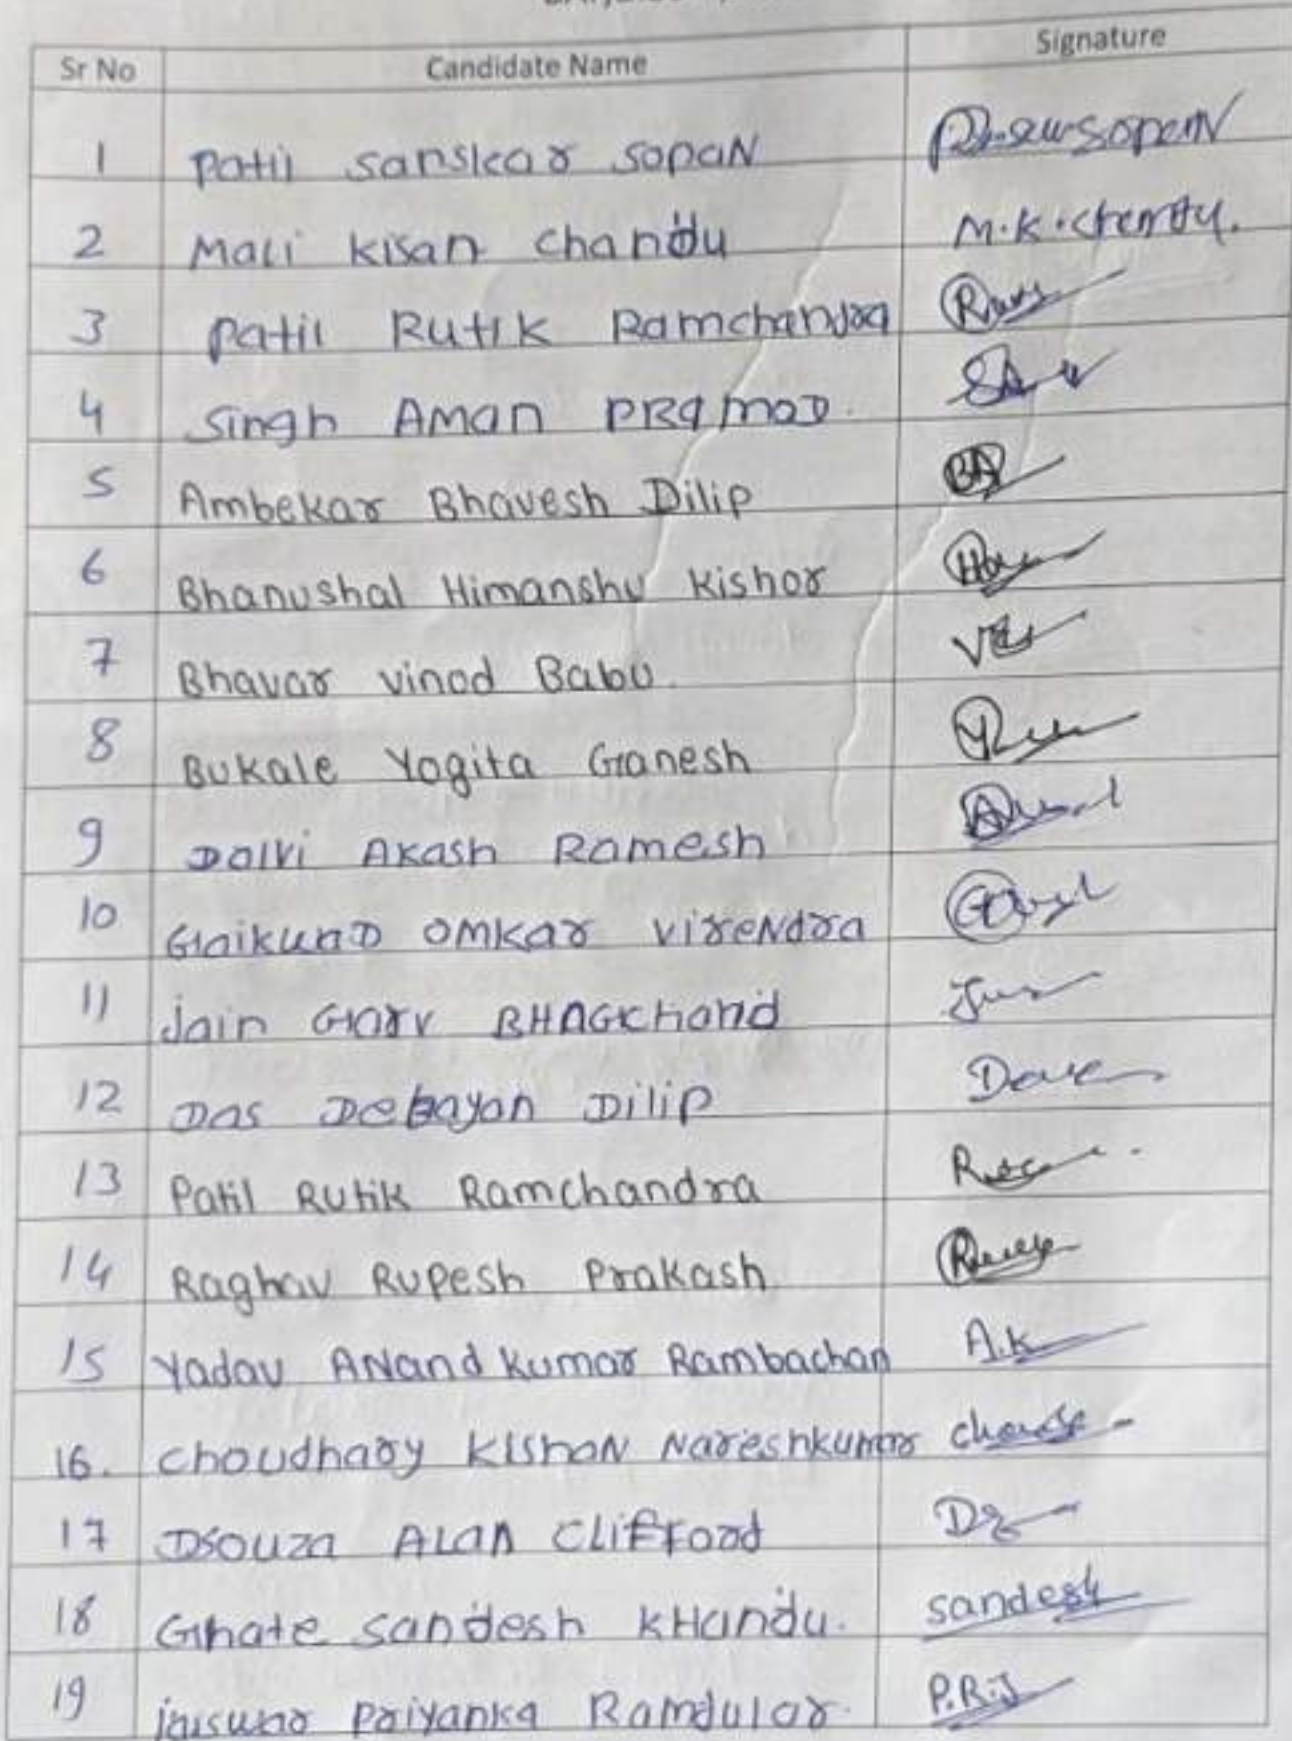 Sr No Candidate Name Signature
1 Patil Sanskar SopaN
2 Mali Kisan Chandu M.K.
3 Patil Rutik Ramchandra
4 Singh AMan PRaMOD.
5 Ambekar Bhavesh Dilip BA
6 Bhanushal Himanshu Kishor
7 Bhavar vinod Babu.
8 Bukale Yogita Ganesh
9 Dalvi Akash Ramesh
10 GaikwaD OMKar VireNdra
11 Jain Garv BHAGChand
12 Das Debayan Dilip
13 Patil Rutik Ramchandra
14 Raghav Rupesh Prakash
15 Yadav ANand Kumar Rambachan A.K
16. Choudhary KishaN Nareshkumar
17 Dsouza ALan Clifford
18 Ghate Sandesh KHandu. Sandesh
19 jaiswar Priyanka Ramdular. P.R.J